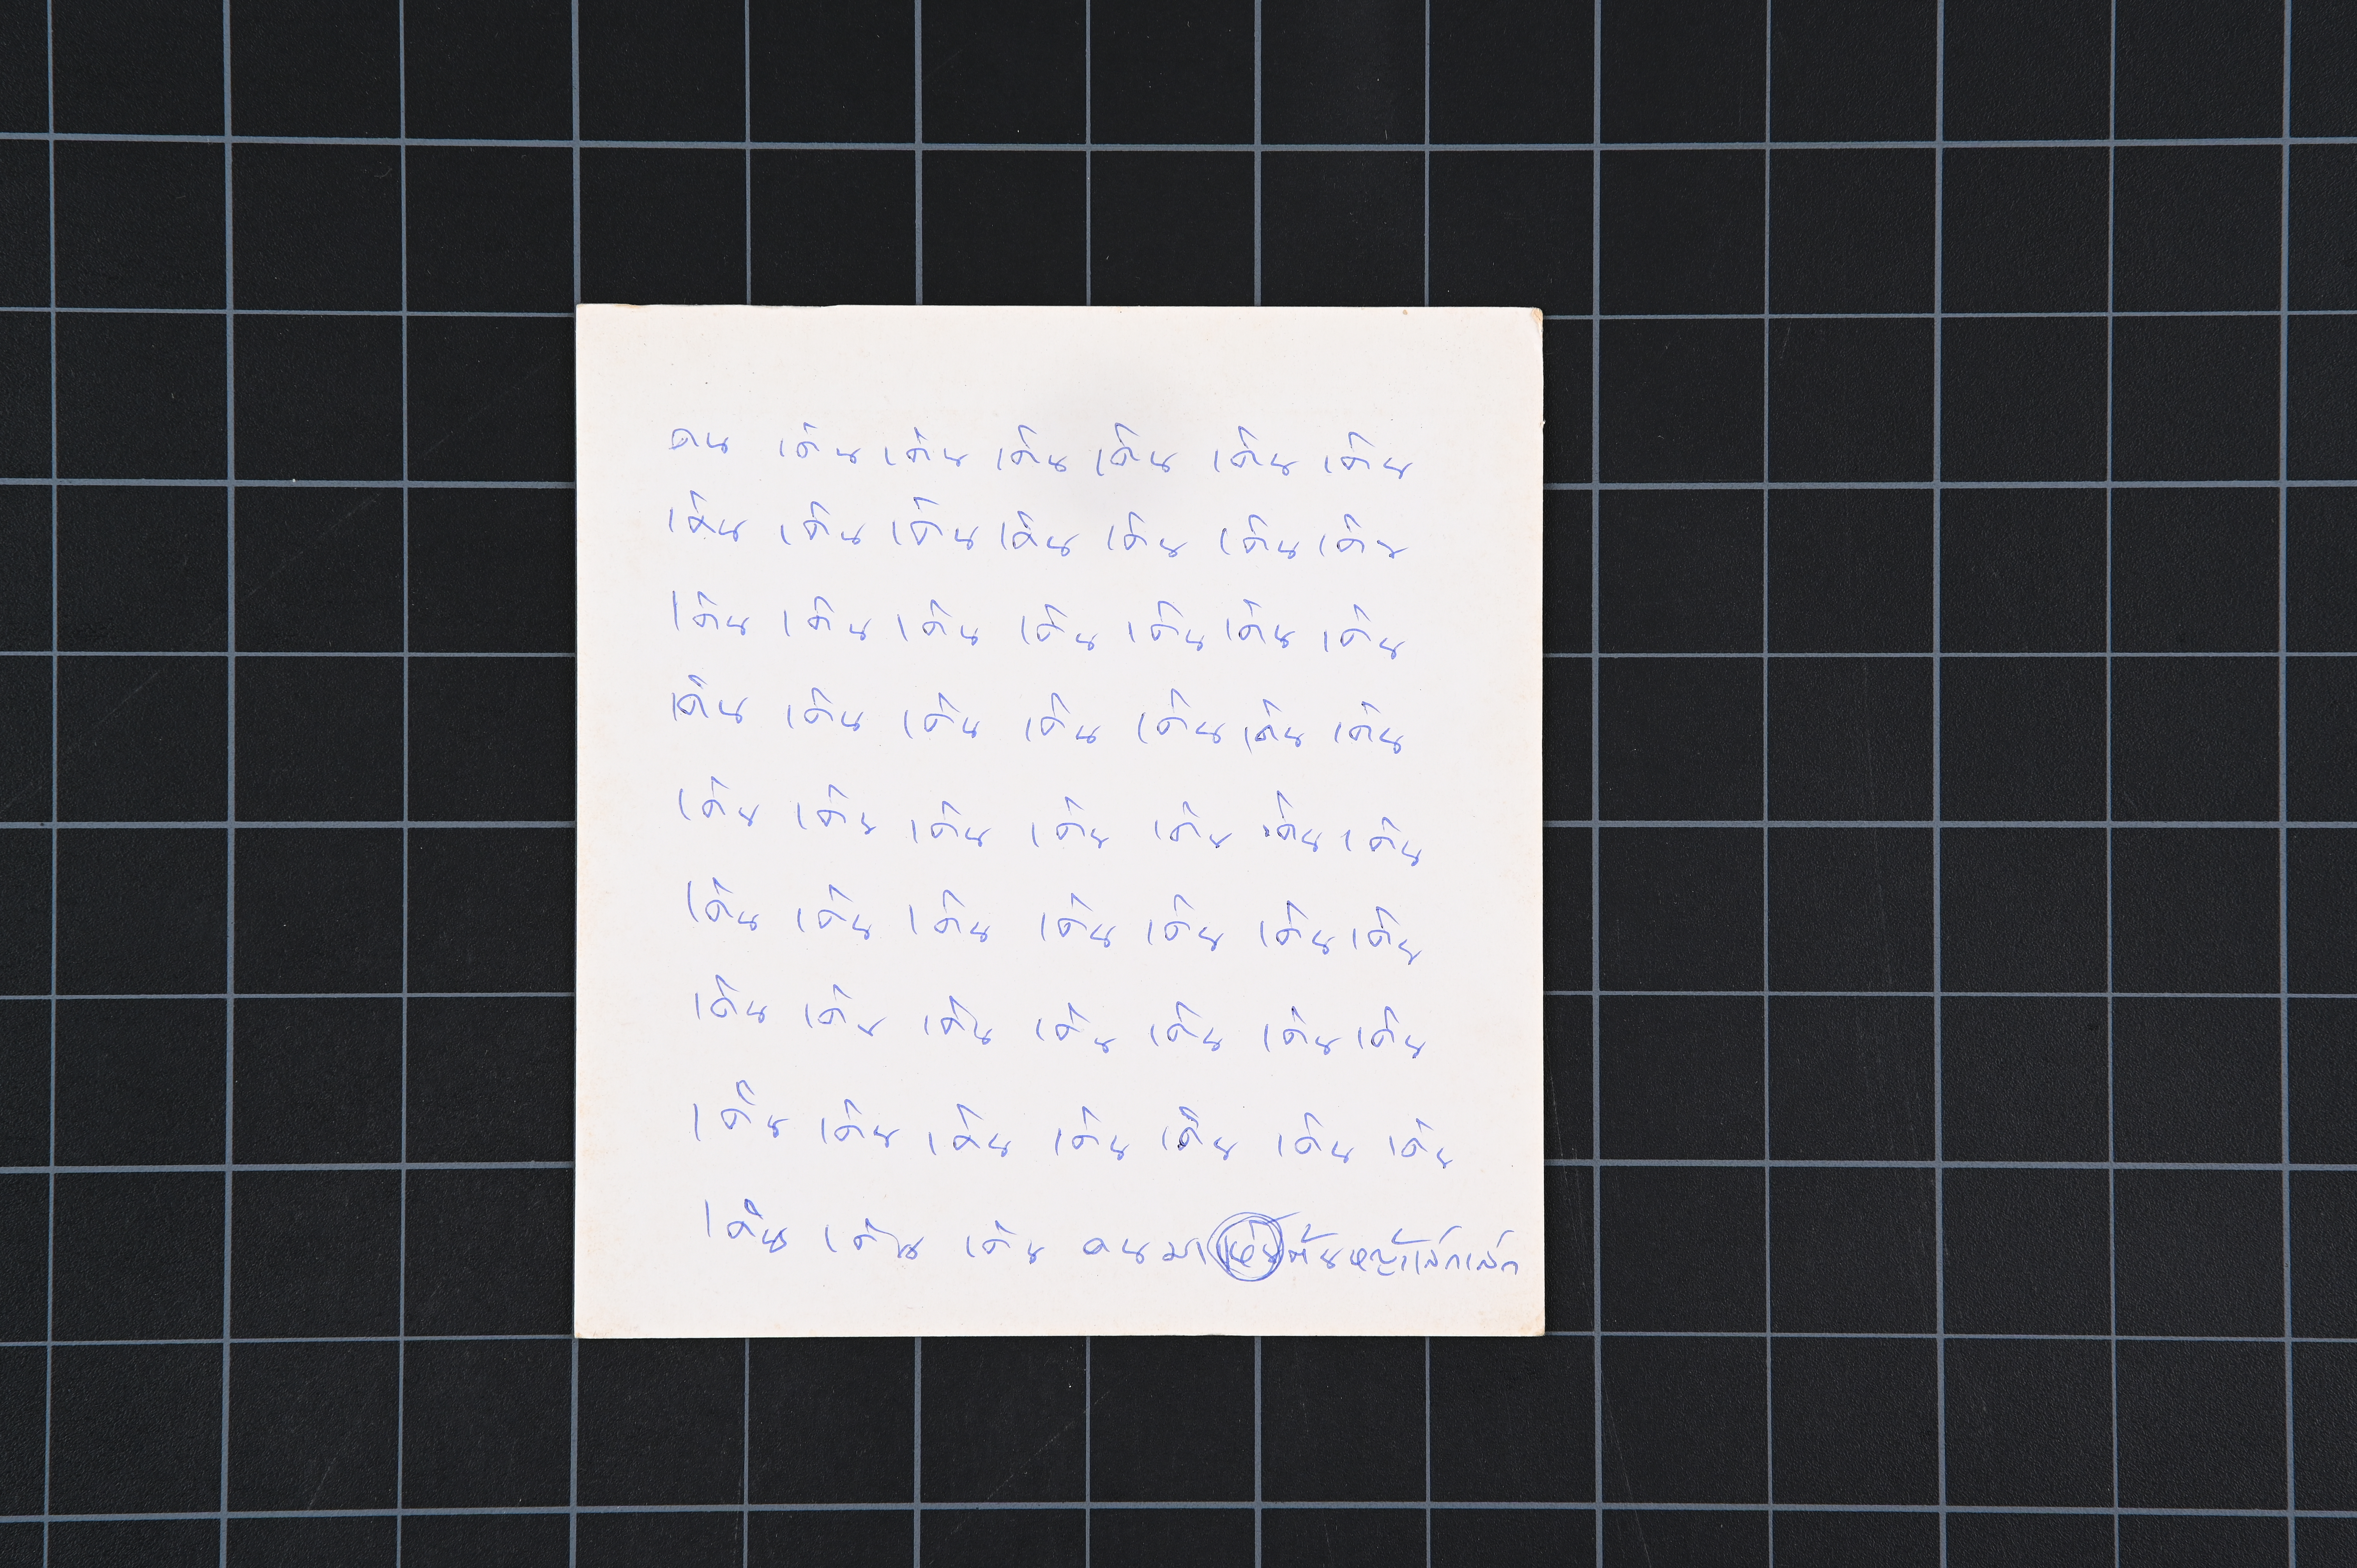 คน เดิน เดิน เดิน เดิน เดิน เดิน
เดิน เดิน เดิน เดิน เดิน เดิน เดิน
เดิน เดิน เดิน เดิน เดิน เดิน เดิน
เดิน เดิน เดิน เดิน เดิน เดิน เดิน
เดิน เดิน เดิน เดิน เดิน เดิน เดิน
เดิน เดิน เดิน เดิน เดิน เดิน เดิน
เดิน เดิน เดิน เดิน เดิน เดิน เดิน
เดิน เดิน เดิน เดิน เดิน เดิน เดิน
เดิน เดิน เดิน คนมาเห็นต้นหญ้าเล็กเล็ก